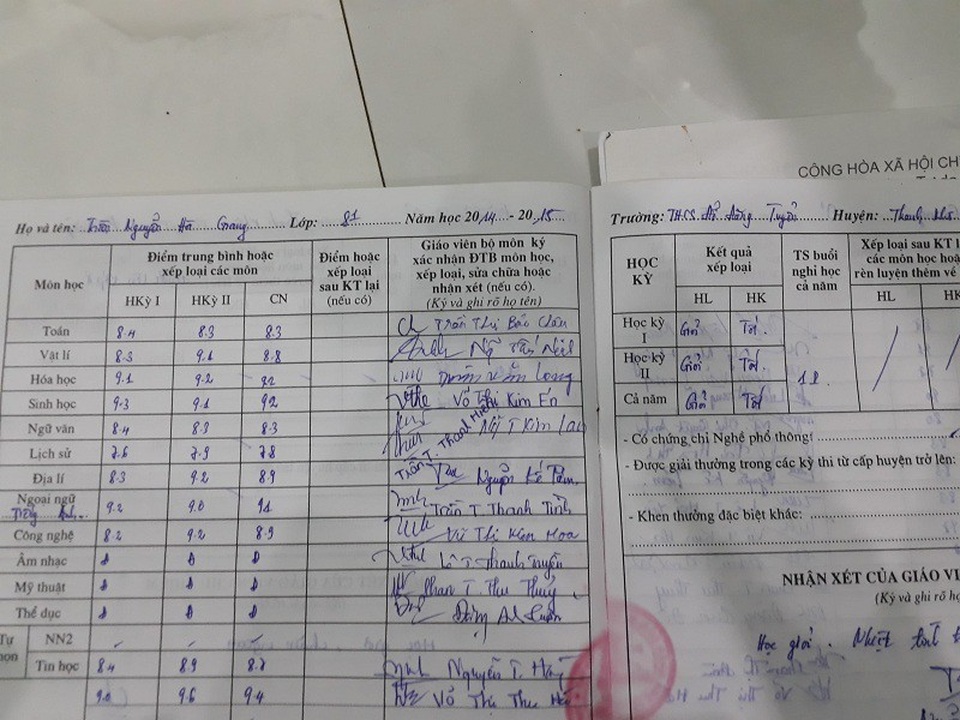 Họ và tên: Trần Nguyễn Hà Giang Lớp: 81 Năm học 2014 - 2015
Môn học
Điểm trung bình hoặc xếp loại các môn
HKỳ I HKỳ II CN
Điểm hoặc xếp loại sau KT lại (nếu có)
Giáo viên bộ môn ký xác nhận ĐTB môn học, xếp loại, sửa chữa hoặc nhận xét (nếu có).
(Ký và ghi rõ họ tên)
Toán 8.4 8.3 8.3 Trần Thị Bảo Châu
Vật lí 8.3 9.1 8.8
Hóa học 9.1 9.2 9.2 Long
Sinh học 9.3 9.1 9.2 Võ Thị Kim Én
Ngữ văn 8.4 8.3 8.3 T Kim
Lịch sử 7.6 7.9 7.8 Trần T. Thanh Hiền
Địa lí 8.3 9.2 8.9 Nguyễn
Ngoại ngữ Tiếng Anh 9.2 9.0 9.1 Trần T. Thanh Tình
Công nghệ 8.2 9.2 8.9 Thị Kim Hoa
Âm nhạc Đ Đ Đ T. Thanh Tuyền
Mỹ thuật Đ Đ Đ Phan T. Thu Thủy
Thể dục Đ Đ Đ Xuân
Tự
họn
NN2
Tin học 8.4 8.9 8.7 Nguyễn T.
9.0 9.6 9.4 Võ Thị Thu
CÔNG HÒA XÃ HỘI CH
Trường: THCS Huyện: Thanh Khê
HỌC KỲ
Kết quả xếp loại
HL HK
TS buổi nghỉ học cả năm
Xếp loại sau KT l
các môn học hoặ
rèn luyện thêm về
HL HK
Học kỳ I Giỏi Tốt
Học kỳ II Giỏi Tốt
Cả năm Giỏi Tốt
- Có chứng chỉ Nghề phổ thông:
- Được giải thưởng trong các kỳ thi từ cấp huyện trở lên:
- Khen thưởng đặc biệt khác:
NHẬN XÉT CỦA GIÁO VI
(Ký và ghi rõ họ
Học giỏi. Nhiệt tình